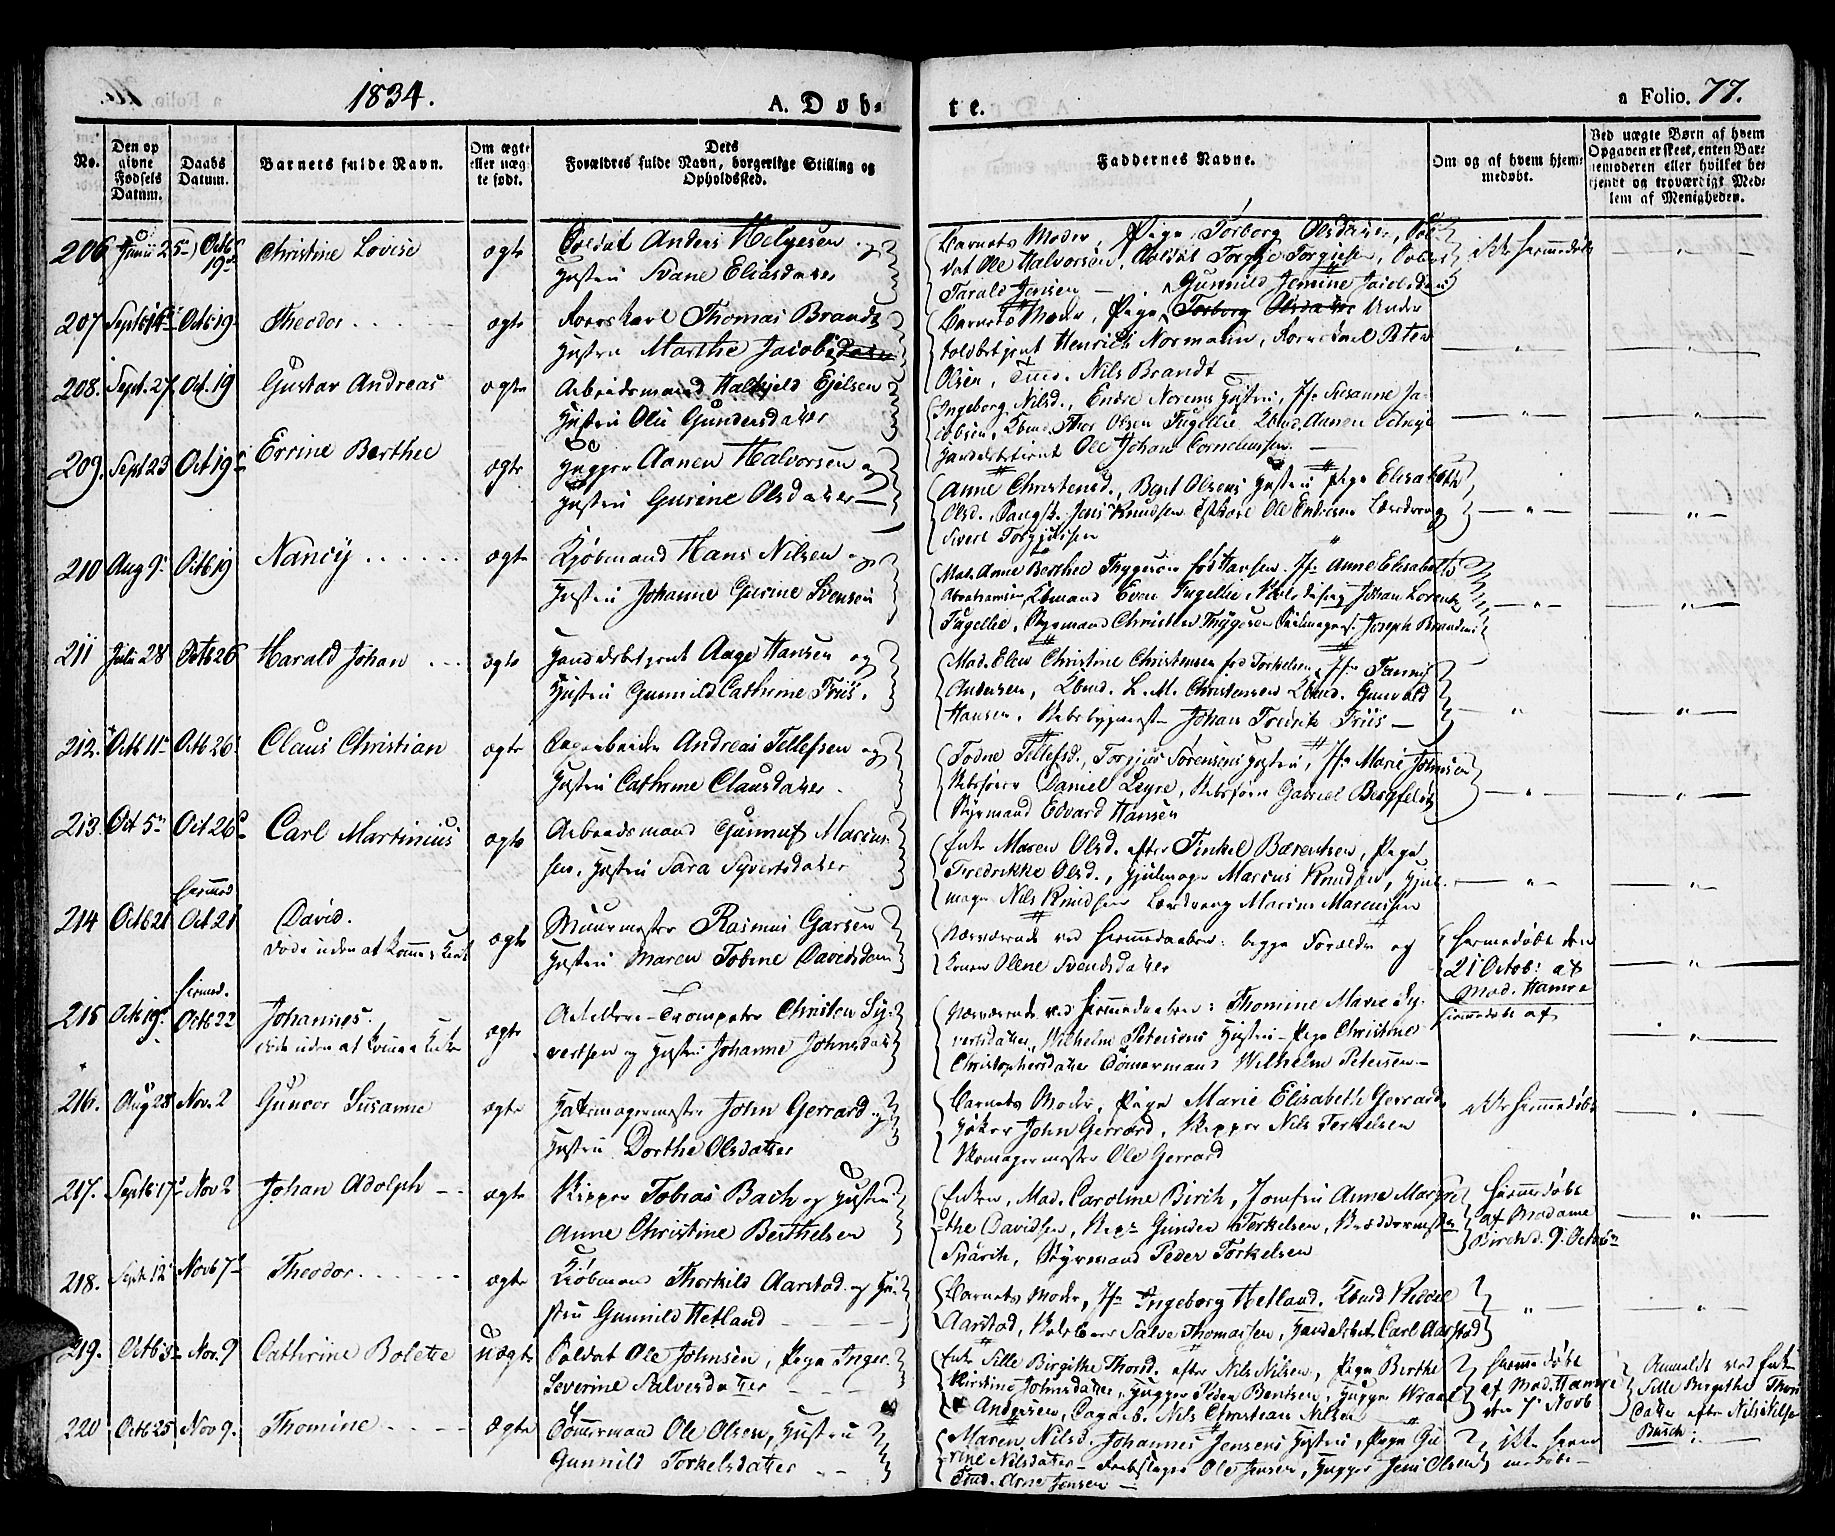 1834. A. Døb-
te. a Folio. 77.
No.
Den op
givne
Fødsels
Datum.
Daabs
Datum.
Barnets fulde Navn.
Om ægte
eller uæg-
te født.
Ders
Forældres fulde Navn, borgerlige Stilling og
Opholdssted.
Faddernes Navne.
Om og af hvem hjem-
medøbt.
Ved uægte Børn af hvem
Opgaven er skeet, enten Bar-
nemoderen eller hvilket be-
tjendt og troværdigt Med-
lem af Menigheden.
206 Junii 25 Octb 19 Christine Lovise ægte Soldat Anders Helgesen og
Hustru Svane Eliasdatter
Barnets Moder, Pige Torborg Olsdatter, Sol-
dat Ole Halvorsen, Soldat Torgje Torgiusen, Soldat
Tarald Jensen — Gunnild Jemine Jacobsdatter
ikke hjemmedøbt
207 Septb 14 Octb 19 Theodor ægte Thomas Brandt
Hustru Marthe Jacobsdatter
Barnets Moder, Pige Torborg Olsdatter Under
toldbetjent Henrich Normann, Peter
Olsen, Nils Brandt
208. Sept. 27 Oct. 19 Gustav Andreas ægte Arbeidsmand Halkjeld Ejelsen
Hustru Olu Gundersdatter
Ingeborg Nilsd., Endre Norems Hustru, Jfr Susanne Ja-
cobsen, Kbmd. Thor Olsen Fugellie Kbmd. Aanon
Handelsbetjent Ole Johan Corneliussen
209. Sept 23 Oct 19 Errine Berthee ægte Hugger Aanen Halvorsen og
Hustru Gurine Olsdatter
Anne Christensd., Bent Olsens Hustru Pige Elisabeth
Olsd., Jens Knudsen Ole Endresen Lærdreng
Sivert Torgjulsen
210 Aug 9 Octb 19 Nancy ægte Kjøbmand Hans Nilsen og
Hustru Johanne Gurine Svensen
Mad. Anne Berthee Thygesen født Hansen. Jfr Anne Elisabeth
Abrahamsen, Kbmand Even Fugellie, Johan Lorentz
Fugellie, Styrmand Christen Thygesen Joseph
211 Julii 28 Octb 26 Harald Johan ægte Handelsbetjent Aage Hansen og
Hustru Gunnild Cathrine Friis.
Mad. Elen Christine Christensen fød Torkelsen, Jfr Fanny
Andersen, Kbmd. L. M. Christensen Kbmd. Gunvald
Hansen, Rebslagermester Johan Fredrik Friis —
212. Octb 11 Octb 26 Claus Christian ægte Sagarbeider Andreas Tellefsen og
Hustru Cathrine Clausdatter
Todne Tellefsd., Torgius Sørensens Hustru, Jfr Marie Johnsen
Daniel Leyre, Gabriel Bergfeldt
Styrmand Edvard Hansen
213. Oct 5 Oct 26 Carl Martinius ægte Arbeidsmand Gunnuf Marcus-
sen, Hustru Sara Syvertsdatter
Enke Maren Olsd. efter Tinkel Bærentsen, Pige
Fredrikke Olsd., Hjulmager Marcus Knudsen, Hjul-
mager Nils Knudsen Lærdreng Marius Marcussen
214 Octb 21 Hiemmed Oct 21 David.
Døde uden at komme i Kirke ægte Muurmester Rasmus Garsen
Hustru Maren Tobine Davidsdatter
Nærværende ved Hiemmedaaben: begge Forældre og
Konen Olene Svendsdatter
Hiemmedøbt den
21 Octob: af
Mad. Hamre
215 Octb 19 Hiemed. Octb 22 Johannes.
døde uden at komme i Kirke ægte Artilleri-Trompeter Christen Sy-
vertsen og Hustru Johanne Johnsdatter
Nærværende ved Hiemmedaaben: Thomine Marie Sy-
vertsdatter, Wilhelm Petersens Hustru — Pige Christine
Christophersdatter Tømmermand Wilhelm Petersen —
Hjemmedøbt af
216. Aug 28 Nov. 2 Guncor Susanne ægte Hattemagermester John Gerrard og
Hustru Dorthe Olsdatter
Barnets Moder, Pige Marie Elisabeth Gerrard,
Høker John Gerrard, Skipper Nils Terkelsen
Skomagermester Ole Gerrard
ikke Hiemmedøbt
217. Septb 17 Nov 2 Johan Adolph ægte Skipper Tobias Bach og Hustru
Anne Christine Berthelsen
Enken, Mad. Caroline Birch, Jomfru Anne Margre-
the Davidsen, Skip. Gunder Terkelsen, Skræddermester
Spärch, Styrmand Peder Torkelsen
Hiemmedøbt
af Madame
Birch d. 9. Octob
218. Septb 12 Novb 7 Theodor ægte Kiøbmand Thorkild Aarstad og Hu-
stru Gunnild Hetland
Barnets Moder, Jfr Ingeborg Hetland, Kbmd
Aarstad, Salve Thomassen, Handelsbet. Carl Aarstad
219. Octb 5 Nov. 9 Cathrine Bolette Uægte Soldat Ole Johnsen, Pige Inger
Severine Salvesdatter
Enke Sille Birgithe Thord. efter Nils Nilsen, Pige Berthe
Kirstine Johnsdatter, Hugger Peder Bentsen, Hugger
Andersen, Sagarb. Nils Christian Nilsen
Hiemmedøbt
af Mad. Hamre
den 7 Novb
Anmeldt ved Enke
Sille Birgithe Thors
Datter efter Nils Nilsen
Busch
220 Octb 25 Nov 9. Thomine ægte Tømmermand Ole Olsen, Hustru
Gunnild Torkelsdatter
Maren Nilsd. Johannes Jensens Hustru, Pige Gu-
rine Nilsdatter — Ole Jensen, Hugger Jens Olsen
Stud. Arne Jensen —
ikke hiem
medøbt